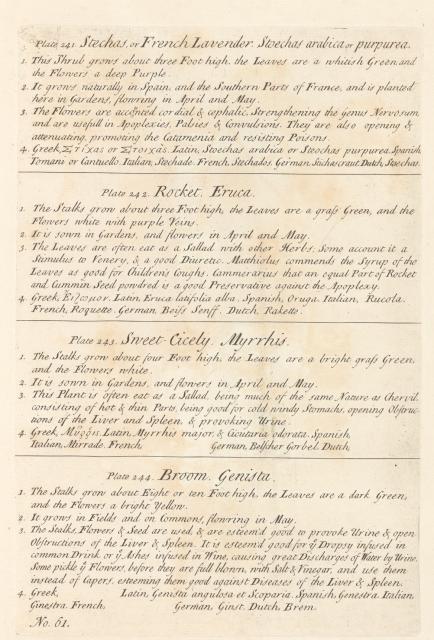 Plate 241. Stechas, or French Lavender. Stoechas arabica or purpurea.
1. This Shrub grows about three Foot high, the Leaves are a whitish Green, and
the Flowers a deep Purple.
2. It grows naturally in Spain, and the Southern Parts of France, and is planted
here in Gardens, flowring in April and May.
3. The Flowers are accoŭted cordial & cephalic, Strengthening the Genus Nervosum
and are usefull in Apoplexies, Palsies & Convulsions. They are also opening &
attenuating, promoting the Catamenia and resisting Poisons.
4. Greek, Στίχας or Στοιχάς. Latin, Stoechas arabica or Stoechas purpurea. Spanish,
Tomani or Cantuello. Italian, Stechade. French, Stechados. German, Stichascraut. Dutch, Stoechas.
Plate 242. Rocket. Eruca.
1. The Stalks grow about three Foot high, the Leaves are a grass Green, and the
Flowers white with purple Veins.
2. It is sown in Gardens, and flowers in April and May.
3. The Leaves are often eat as a Sallad with other Herbs. Some account it a
Stimulus to Venery, & a good Diuretic. Matthiolus commends the Syrup of the
Leaves as good for Children's Coughs. Cammerarius that an equal Part of Rocket
and Cummin Seed powdred is a good Preservative against the Apoplexy.
4. Greek, Latin, Eruca latifolia alba. Spanish, Oruga. Italian, Rucola.
French, Roquette. German, Beiss Senff. Dutch, Rakette.
Plate 243. Sweet-Cicely. Myrrhis.
1. The Stalks grow about four Foot high, the Leaves are a bright grass Green,
and the Flowers white.
2. It is sown in Gardens, and flowers in April and May.
3. This Plant is often eat as a Sallad, being much of the same Nature as Chervil,
consisting of hot & thin Parts, being good for cold windy Stomachs, opening Obstruc-
tions of the Liver and Spleen, & provoking Urine.
4. Greek, Latin, Myrrhis major, & Cicutaria odorata. Spanish,
Italian, Mirrade. French, German, Gorbel. Dutch,
Plate 244. Broom. Genista.
1. The Stalks grow about Eight or ten Foot high, the Leaves are a dark Green,
and the Flowers a bright Yellow.
2. It grows in Fields and on Commons, flowring in May.
3. The Stalks, Flowers & Seed are used, & are esteem'd good to provoke Urine & open
Obstructions of the Liver & Spleen. It is esteem'd good for ye Dropsy infused in
common Drink or ye Ashes infused in Wine, causing great Discharges of Water by Urine.
Some pickle ye Flowers, before they are full blown, with Salt & Vinegar, and use them
instead of Capers, esteeming them good against Diseases of the Liver & Spleen.
4. Greek, Latin, Genista angulosa et Scoparia. Spanish, Genestra. Italian,
Ginestra. French, German, Ginst. Dutch, Brem.
No. 61.